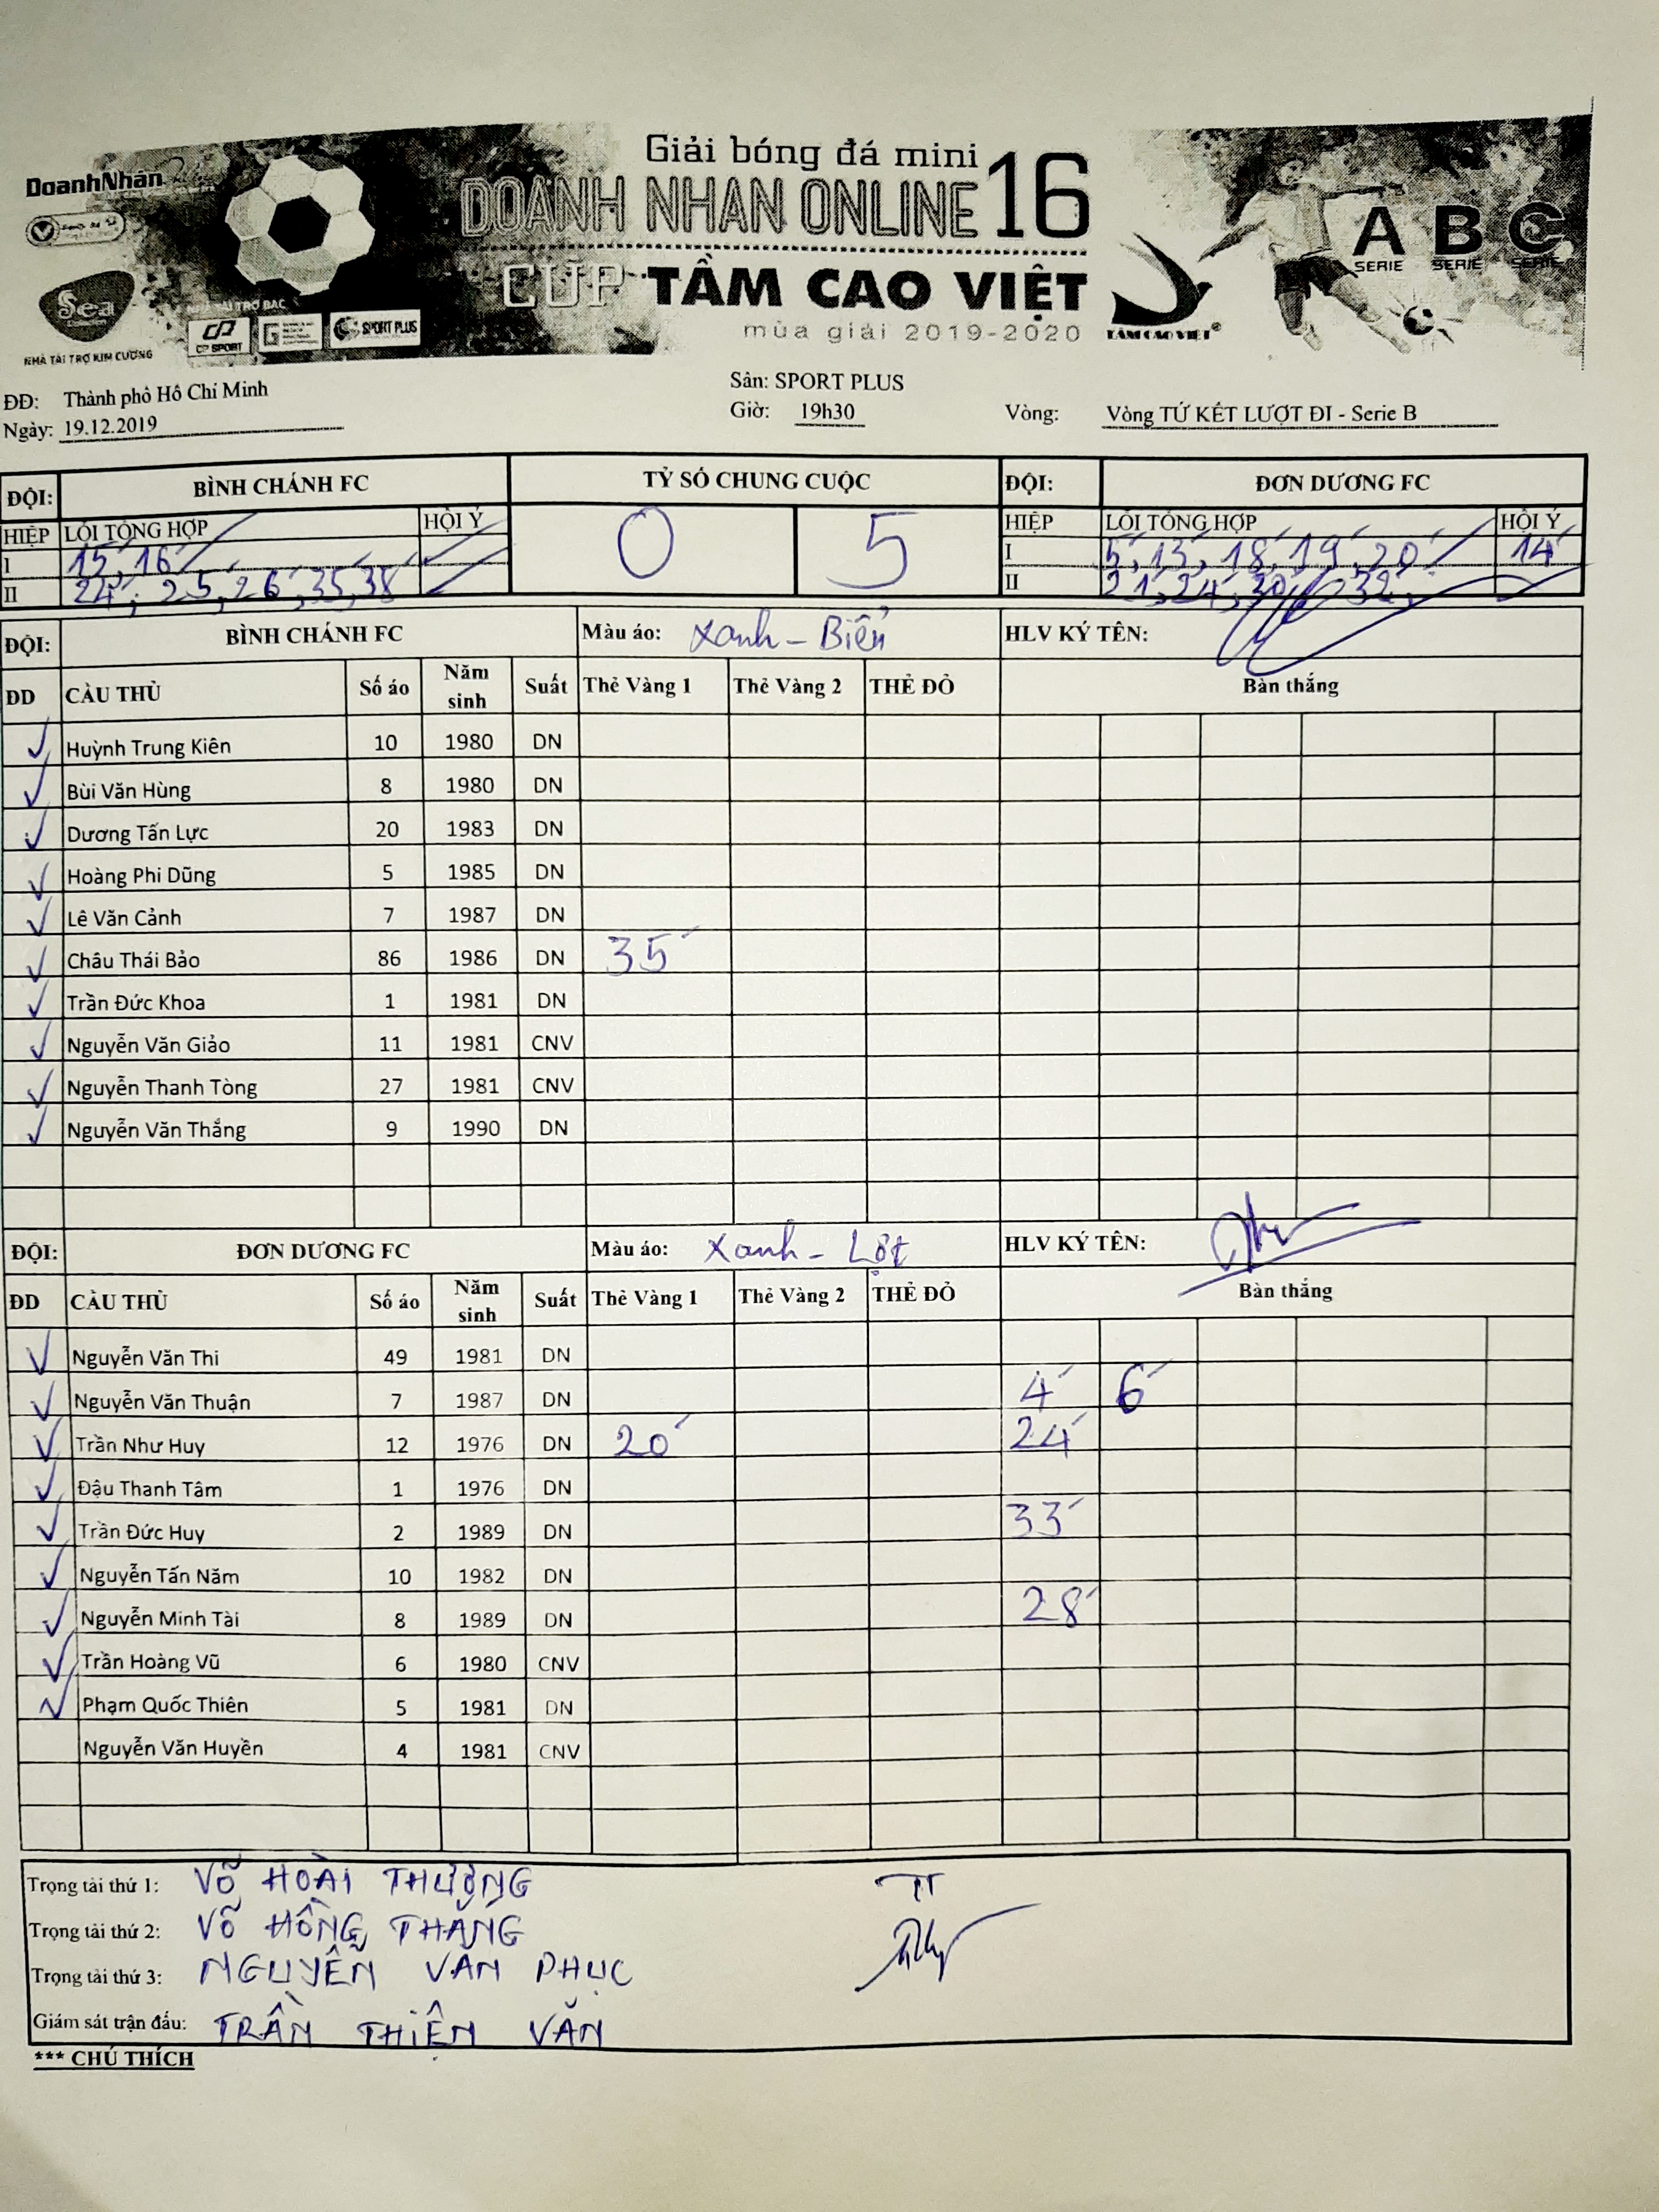 Giải bóng đá mini
DoanhNhân
DOANH NHAN ONLINE 16
A B C
SERIE SERIE SERIE
CUP TẦM CAO VIỆT
Sea
mùa giải 2019-2020
TẦM CAO VIỆT®
CP SPORT SPORT PLUS
NHÀ TÀI TRỢ KIM CƯƠNG
ĐĐ: Thành phố Hồ Chí Minh Sân: SPORT PLUS
Ngày: 19.12.2019 Giờ: 19h30 Vòng: Vòng TỨ KẾT LƯỢT ĐI - Serie B
ĐỘI: BÌNH CHÁNH FC TỶ SỐ CHUNG CUỘC ĐỘI: ĐƠN DƯƠNG FC
HIỆP LỖI TỔNG HỢP HỘI Ý 0 5 HIỆP LỖI TỔNG HỢP HỘI Ý
I 15', 16' I 5', 13', 18', 19', 20' 14'
II 24', 25', 26', 35', 38' II 21', 24', 30', 32'
ĐỘI: BÌNH CHÁNH FC Màu áo: Xanh - Biển HLV KÝ TÊN:
ĐD CẦU THỦ Số áo Năm sinh Suất Thẻ Vàng 1 Thẻ Vàng 2 THẺ ĐỎ Bàn thắng
Huỳnh Trung Kiên 10 1980 DN
Bùi Văn Hùng 8 1980 DN
Dương Tấn Lực 20 1983 DN
Hoàng Phi Dũng 5 1985 DN
Lê Văn Cảnh 7 1987 DN
Châu Thái Bảo 86 1986 DN 35'
Trần Đức Khoa 1 1981 DN
Nguyễn Văn Giảo 11 1981 CNV
Nguyễn Thanh Tòng 27 1981 CNV
Nguyễn Văn Thắng 9 1990 DN
ĐỘI: ĐƠN DƯƠNG FC Màu áo: Xanh - Lợt HLV KÝ TÊN:
ĐD CẦU THỦ Số áo Năm sinh Suất Thẻ Vàng 1 Thẻ Vàng 2 THẺ ĐỎ Bàn thắng
Nguyễn Văn Thi 49 1981 DN
Nguyễn Văn Thuận 7 1987 DN 4' 6'
Trần Như Huy 12 1976 DN 20' 24'
Đậu Thanh Tâm 1 1976 DN
Trần Đức Huy 2 1989 DN 33'
Nguyễn Tấn Năm 10 1982 DN
Nguyễn Minh Tài 8 1989 DN 28'
Trần Hoàng Vũ 6 1980 CNV
Phạm Quốc Thiên 5 1981 DN
Nguyễn Văn Huyền 4 1981 CNV
Trọng tài thứ 1: VÕ HOÀI THƯƠNG
Trọng tài thứ 2: VÕ HỒNG THẮNG
Trọng tài thứ 3: NGUYỄN VĂN PHỤC
Giám sát trận đấu: TRẦN THIỆN VĂN
*** CHÚ THÍCH